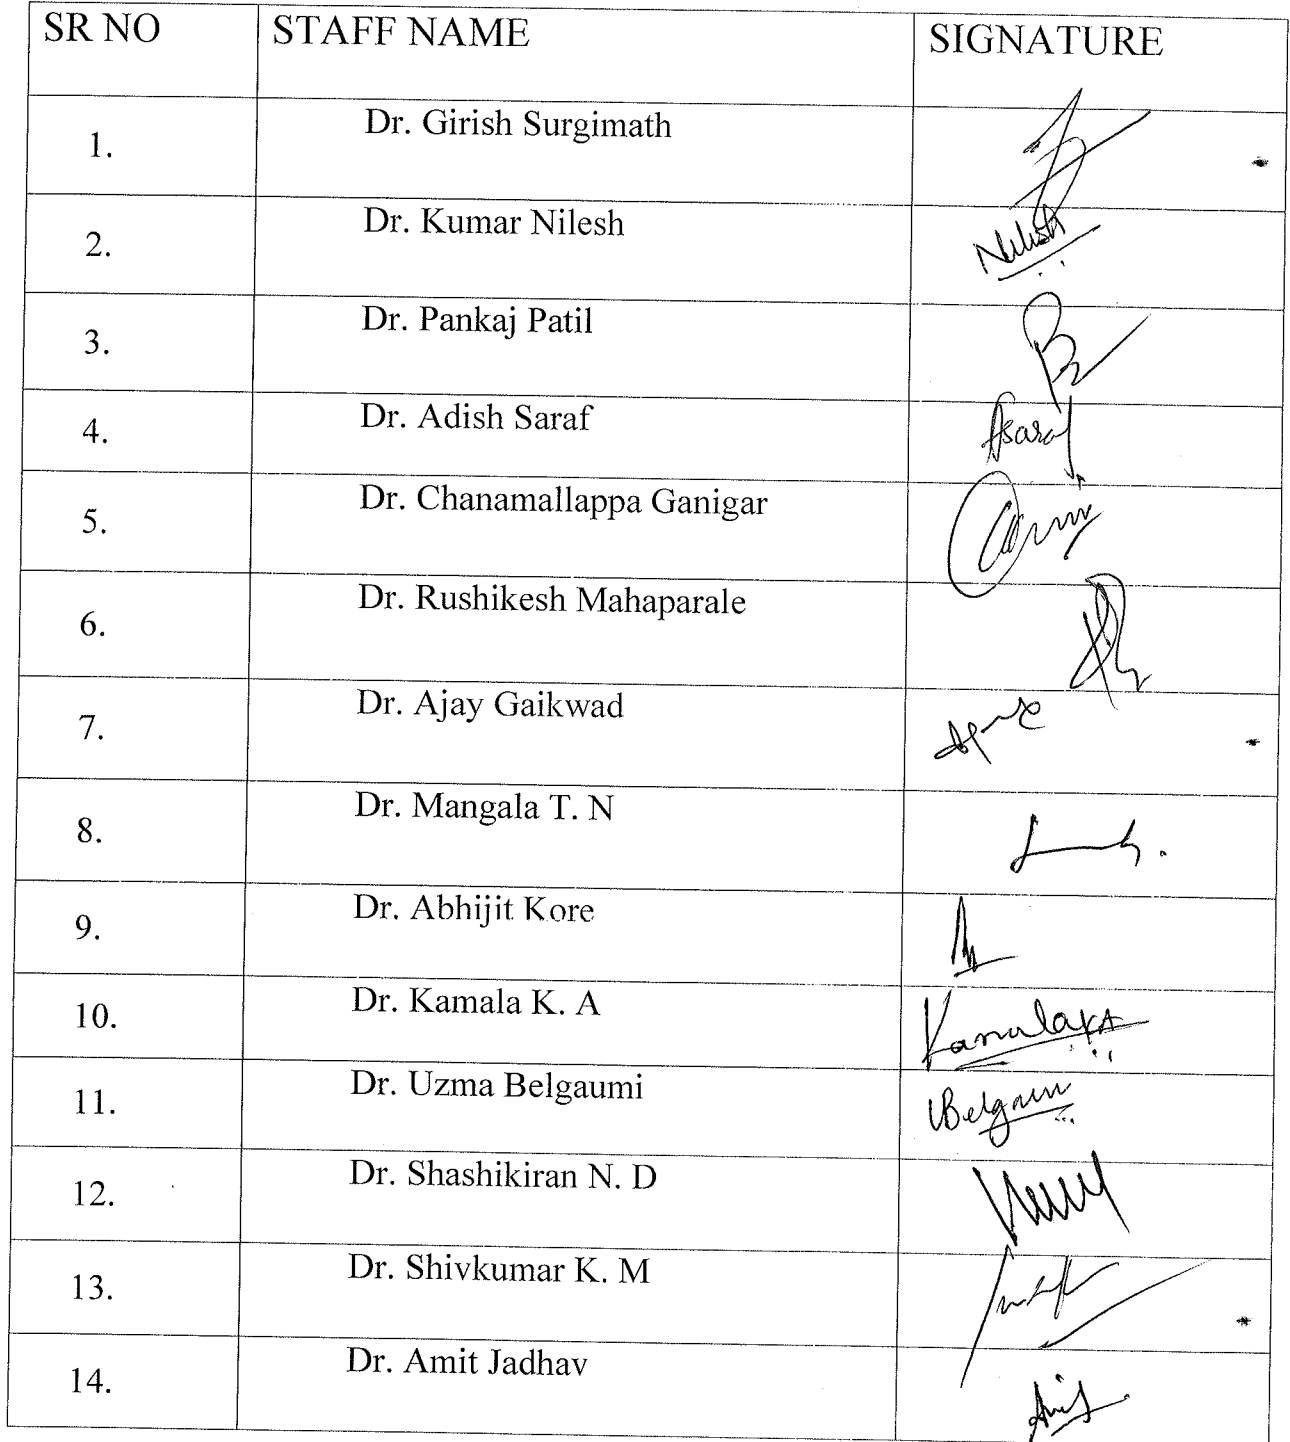 SR NO STAFF NAME SIGNATURE
1. Dr. Girish Surgimath
2. Dr. Kumar Nilesh Nilesh
3. Dr. Pankaj Patil
4. Dr. Adish Saraf Asaraf
5. Dr. Chanamallappa Ganigar
6. Dr. Rushikesh Mahaparale
7. Dr. Ajay Gaikwad
8. Dr. Mangala T. N
9. Dr. Abhijit Kore
10. Dr. Kamala K. A Kamala KA
11. Dr. Uzma Belgaumi
12. Dr. Shashikiran N. D
13. Dr. Shivkumar K. M
14. Dr. Amit Jadhav Amit